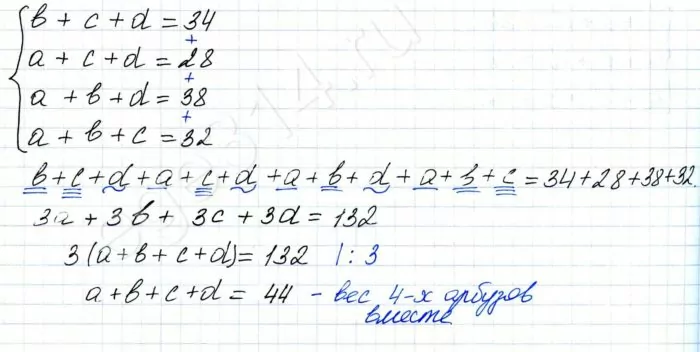 b + c + d = 34
+
a + c + d = 28
+
a + b + d = 38
+
a + b + c = 32
b+c+d+a+c+d+a+b+d+a+b+c=34+28+38+32
3a + 3b + 3c + 3d = 132
3(a+b+c+d)=132 |:3
a+b+c+d = 44 - вес 4-х арбузов
вместе